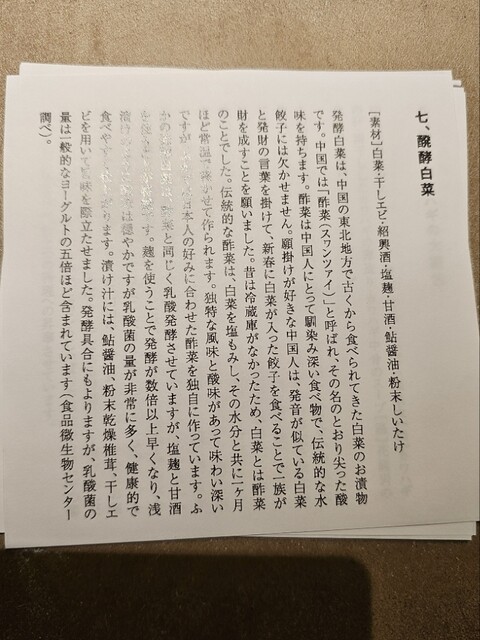 七、醗酵白菜
[素材]白菜・干しエビ・紹興酒・塩麹・甘酒・鮎醤油・粉末しいたけ
発酵白菜は、中国の東北地方で古くから食べられてきた白菜のお漬物
です。中国では「酢菜(スワンツァイ)」と呼ばれ、その名のとおり尖った酸
味を持ちます。酢菜は中国人にとって馴染み深い食べ物で、伝統的な水
餃子には欠かせません。願掛けが好きな中国人は、発音が似ている白菜
と発財の言葉を掛けて、新春に白菜が入った餃子を食べることで一族が
財を成すことを願いました。昔は冷蔵庫がなかったため、白菜とは酢菜
のことでした。伝統的な酢菜は、白菜を塩もみし、その水分と共に一ヶ月
ほど常温で寝かせて作られます。独特な風味と酸味があって味わい深い
ですが 日本人の好みに合わせた酢菜を独自に作っています。ふ
かの 菜と同じく乳酸発酵させていますが、塩麹と甘酒
を です。麹を使うことで発酵が数倍以上早くなり、浅
漬け は穏やかですが乳酸菌の量が非常に多く、健康的で
食べや ります。漬け汁には、鮎醤油、粉末乾燥椎茸、干しエ
ビを用いて旨味を際立たせました。発酵具合にもよりますが、乳酸菌の
量は一般的なヨーグルトの五倍ほど含まれています(食品微生物センター
調べ)。